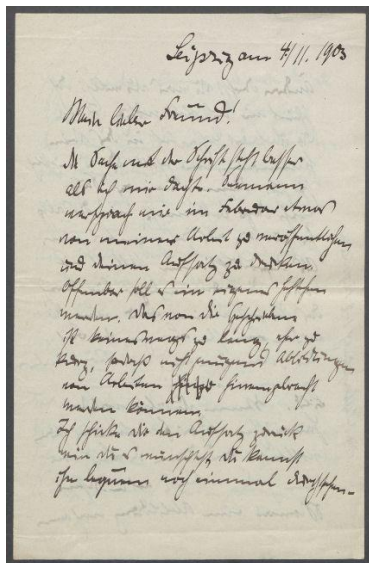 Leipzig am 4/11. 1903
Mein lieber Freund!
Die Sache mit der Schrift steht besser
als ich mir dachte. Seemann
versprach mir im Februar etwas
von meiner Arbeit zu veröffentlichen
und deinen Aufsatz zu drucken.
Offenbar soll es ein eigenes
werden. Das von dir Geschriebene
ist keineswegs zu lang, eher zu
kurz, sodaß nicht genügend Abbildungen
von Arbeiten hineingebracht
werden können.
Ich schicke dir den Aufsatz zurück
wie du es wünschest, du kannst
ihn bequem noch einmal durchsehen